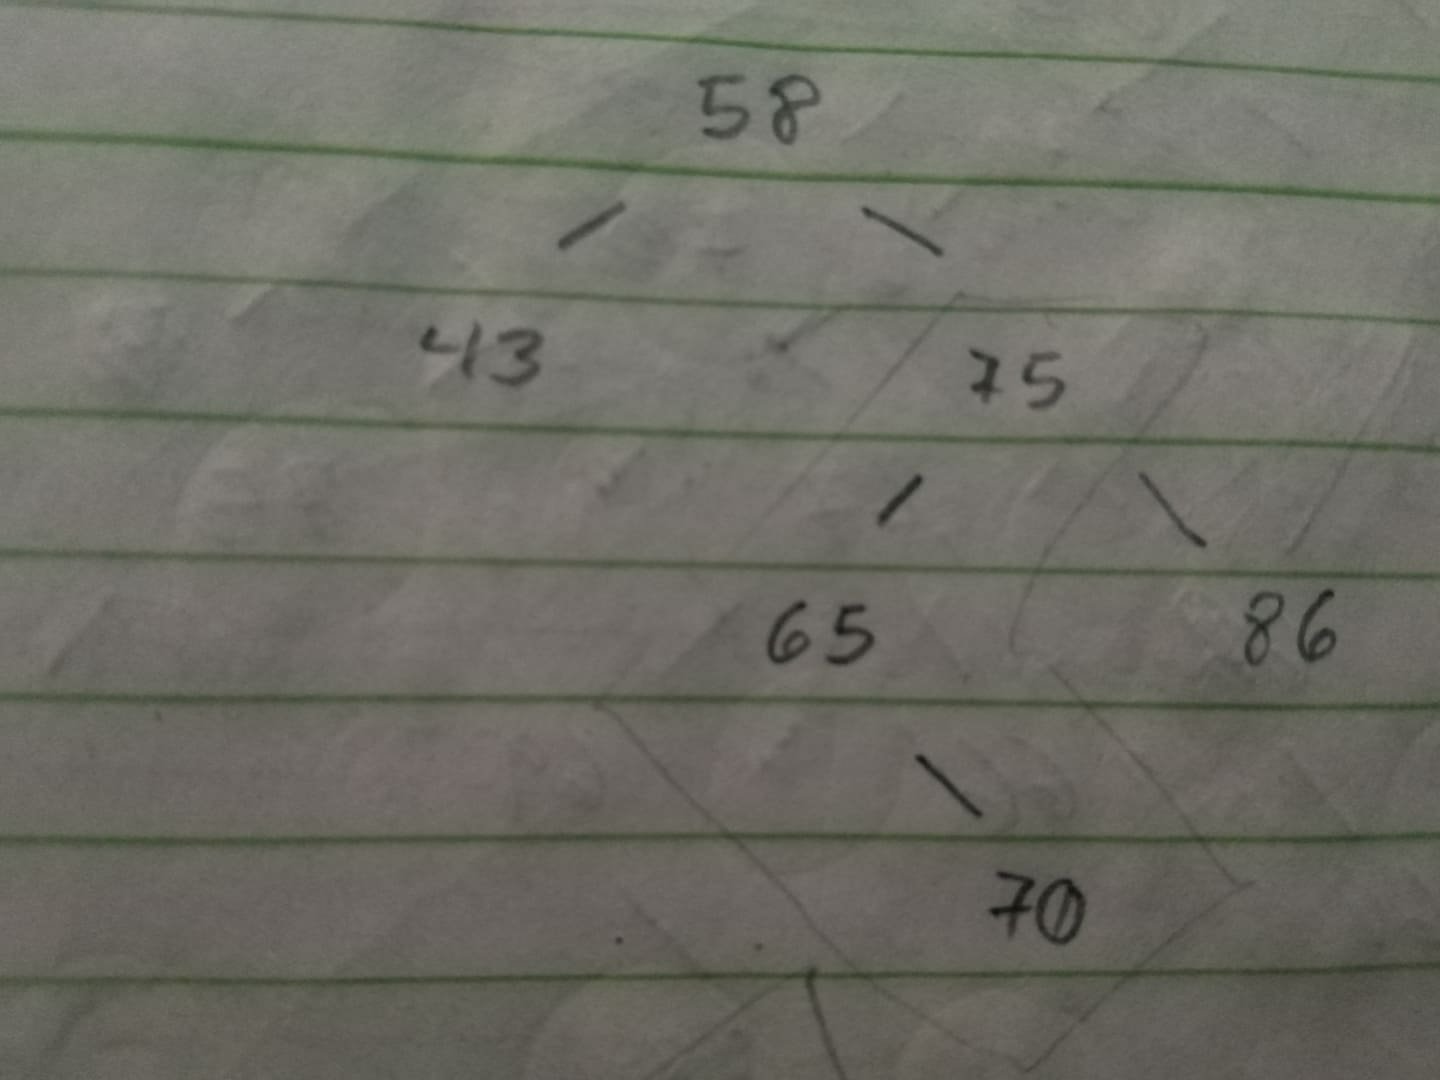 58
43 75
65 86
70